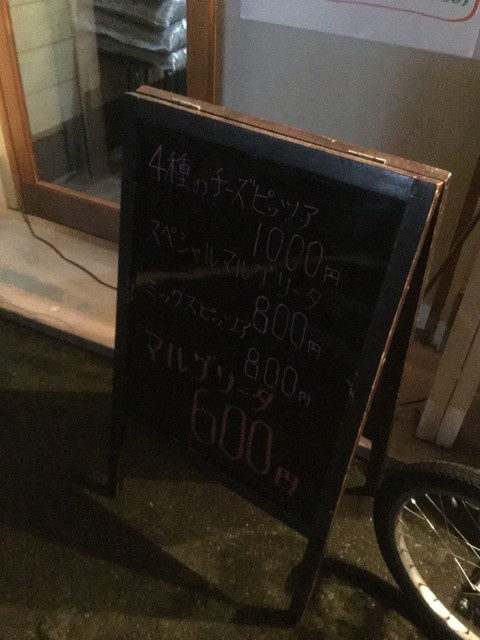 4種のチーズピッツア
1000円
スペシャルマルゲリータ
800円
ミックスピッツア
800円
マルゲリータ
600円